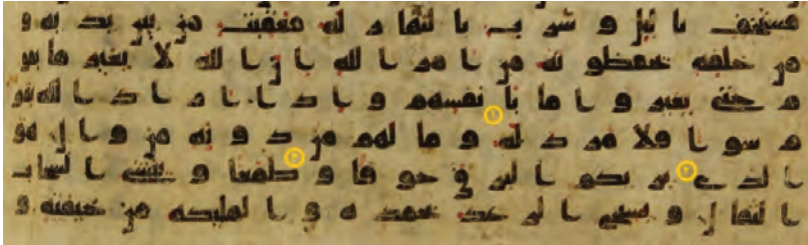 مستخف باليل و سرب بالنهار له معقبت من بين يديه و
من خلفه يحفظونه من امر الله ان الله لا يغير ما بقو
م حتى يغيروا ما بانفسهم و اذا اراد الله بقو
١
م سوا فلا مرد له و ما لهم من دونه من وال هو
٢
٣
الذي يريكم البرق خوفا و طمعا و ينشئ السحاب
الثقال و يسبح الرعد بحمده و الملئكه من خيفته و